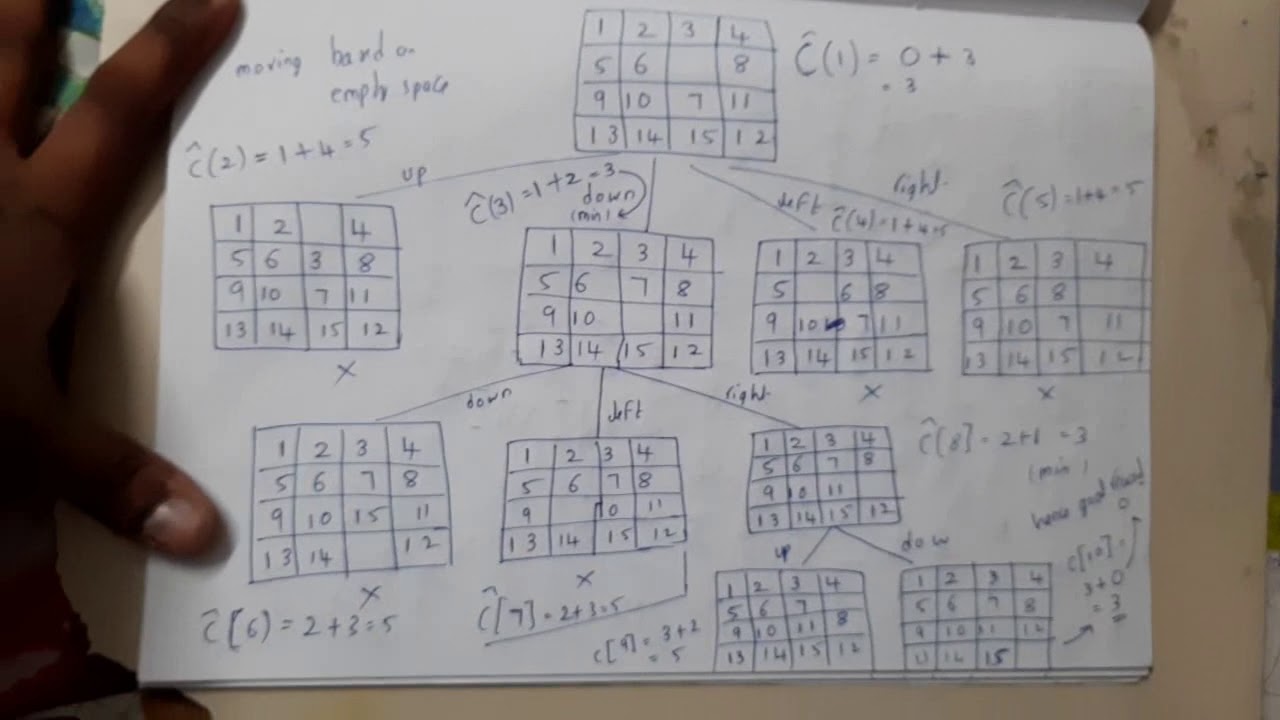 moving based on
empty space
1 2 3 4
5 6 8
9 10 7 11
13 14 15 12
Ĉ(1) = 0 + 3
= 3
Ĉ(2) = 1 + 4 = 5
up
Ĉ(3) = 1 + 2 = 3
down
(min)
left
Ĉ(4) = 1 + 4 = 5
right
Ĉ(5) = 1+4 = 5
1 2 4
5 6 3 8
9 10 7 11
13 14 15 12
X
1 2 3 4
5 6 7 8
9 10 11
13 14 15 12
1 2 3 4
5 6 8
9 10 7 11
13 14 15 12
X
1 2 3 4
5 6 8
9 10 7 11
13 14 15 12
X
down
left
right
1 2 3 4
5 6 7 8
9 10 15 11
13 14 12
X
Ĉ[6] = 2 + 3 = 5
1 2 3 4
5 6 7 8
9 10 11
13 14 15 12
X
Ĉ[7] = 2+3=5
1 2 3 4
5 6 7 8
9 10 11
13 14 15 12
Ĉ[8] = 2+1 = 3
(min)
up
dow
1 2 3 4
5 6 7
9 10 11 8
13 14 15 12
c[9] = 3+2
= 5
1 2 3 4
5 6 7 8
9 10 11 12
13 14 15
c[10] =
3+0
= 3
hence goal
0